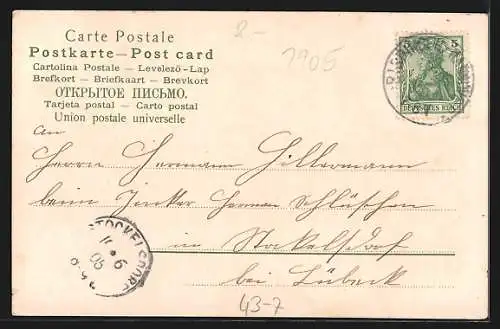 Carte Postale
Postkarte — Post card
Cartolina Postale — Levelező-Lap
Brefkort — Briefkaart — Brevkort
ОТКРЫТОЕ ПИСЬМО.
Tarjeta postal — Carto postal
Union postale universelle
2-
1905
5
DEUTSCHES REICH
An
Herrn Hermann Hillermann
beim Imker Herman Schlüschen
in Stokelsdorf
bei Lübeck
STOCKELSDORF
43-7